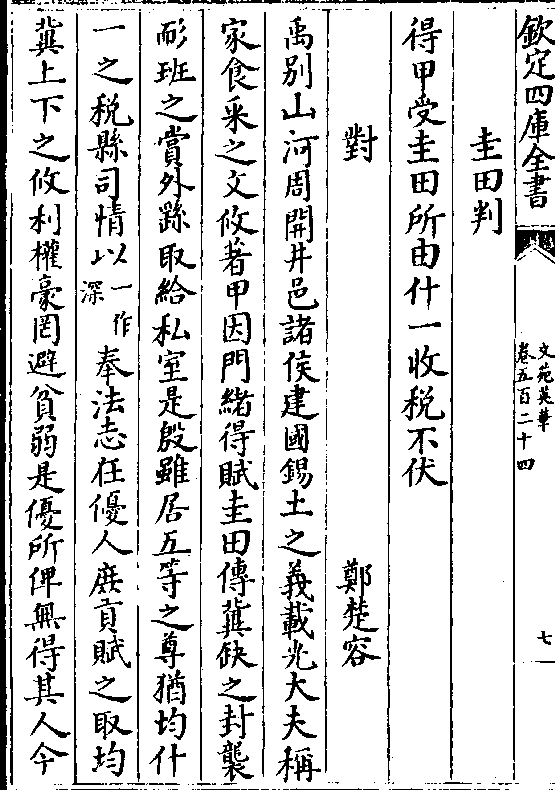 欽定四庫全書
文苑英華
卷五百二十四
七
圭田判
得甲受圭田所由什一收稅不伏
對 鄭楚容
禹別山河周開井邑諸侯建國錫土之義載光大夫稱
家食采之文攸著甲因門緒得賦圭田傳冀缺之封襲
彤班之賞外繇取給私室是殷雖居五等之尊猶均什
一之稅縣司情以一作深奉法志在優人庶貢賦之取均
冀上下之攸利權豪罔避貧弱是優所俾無得其人今